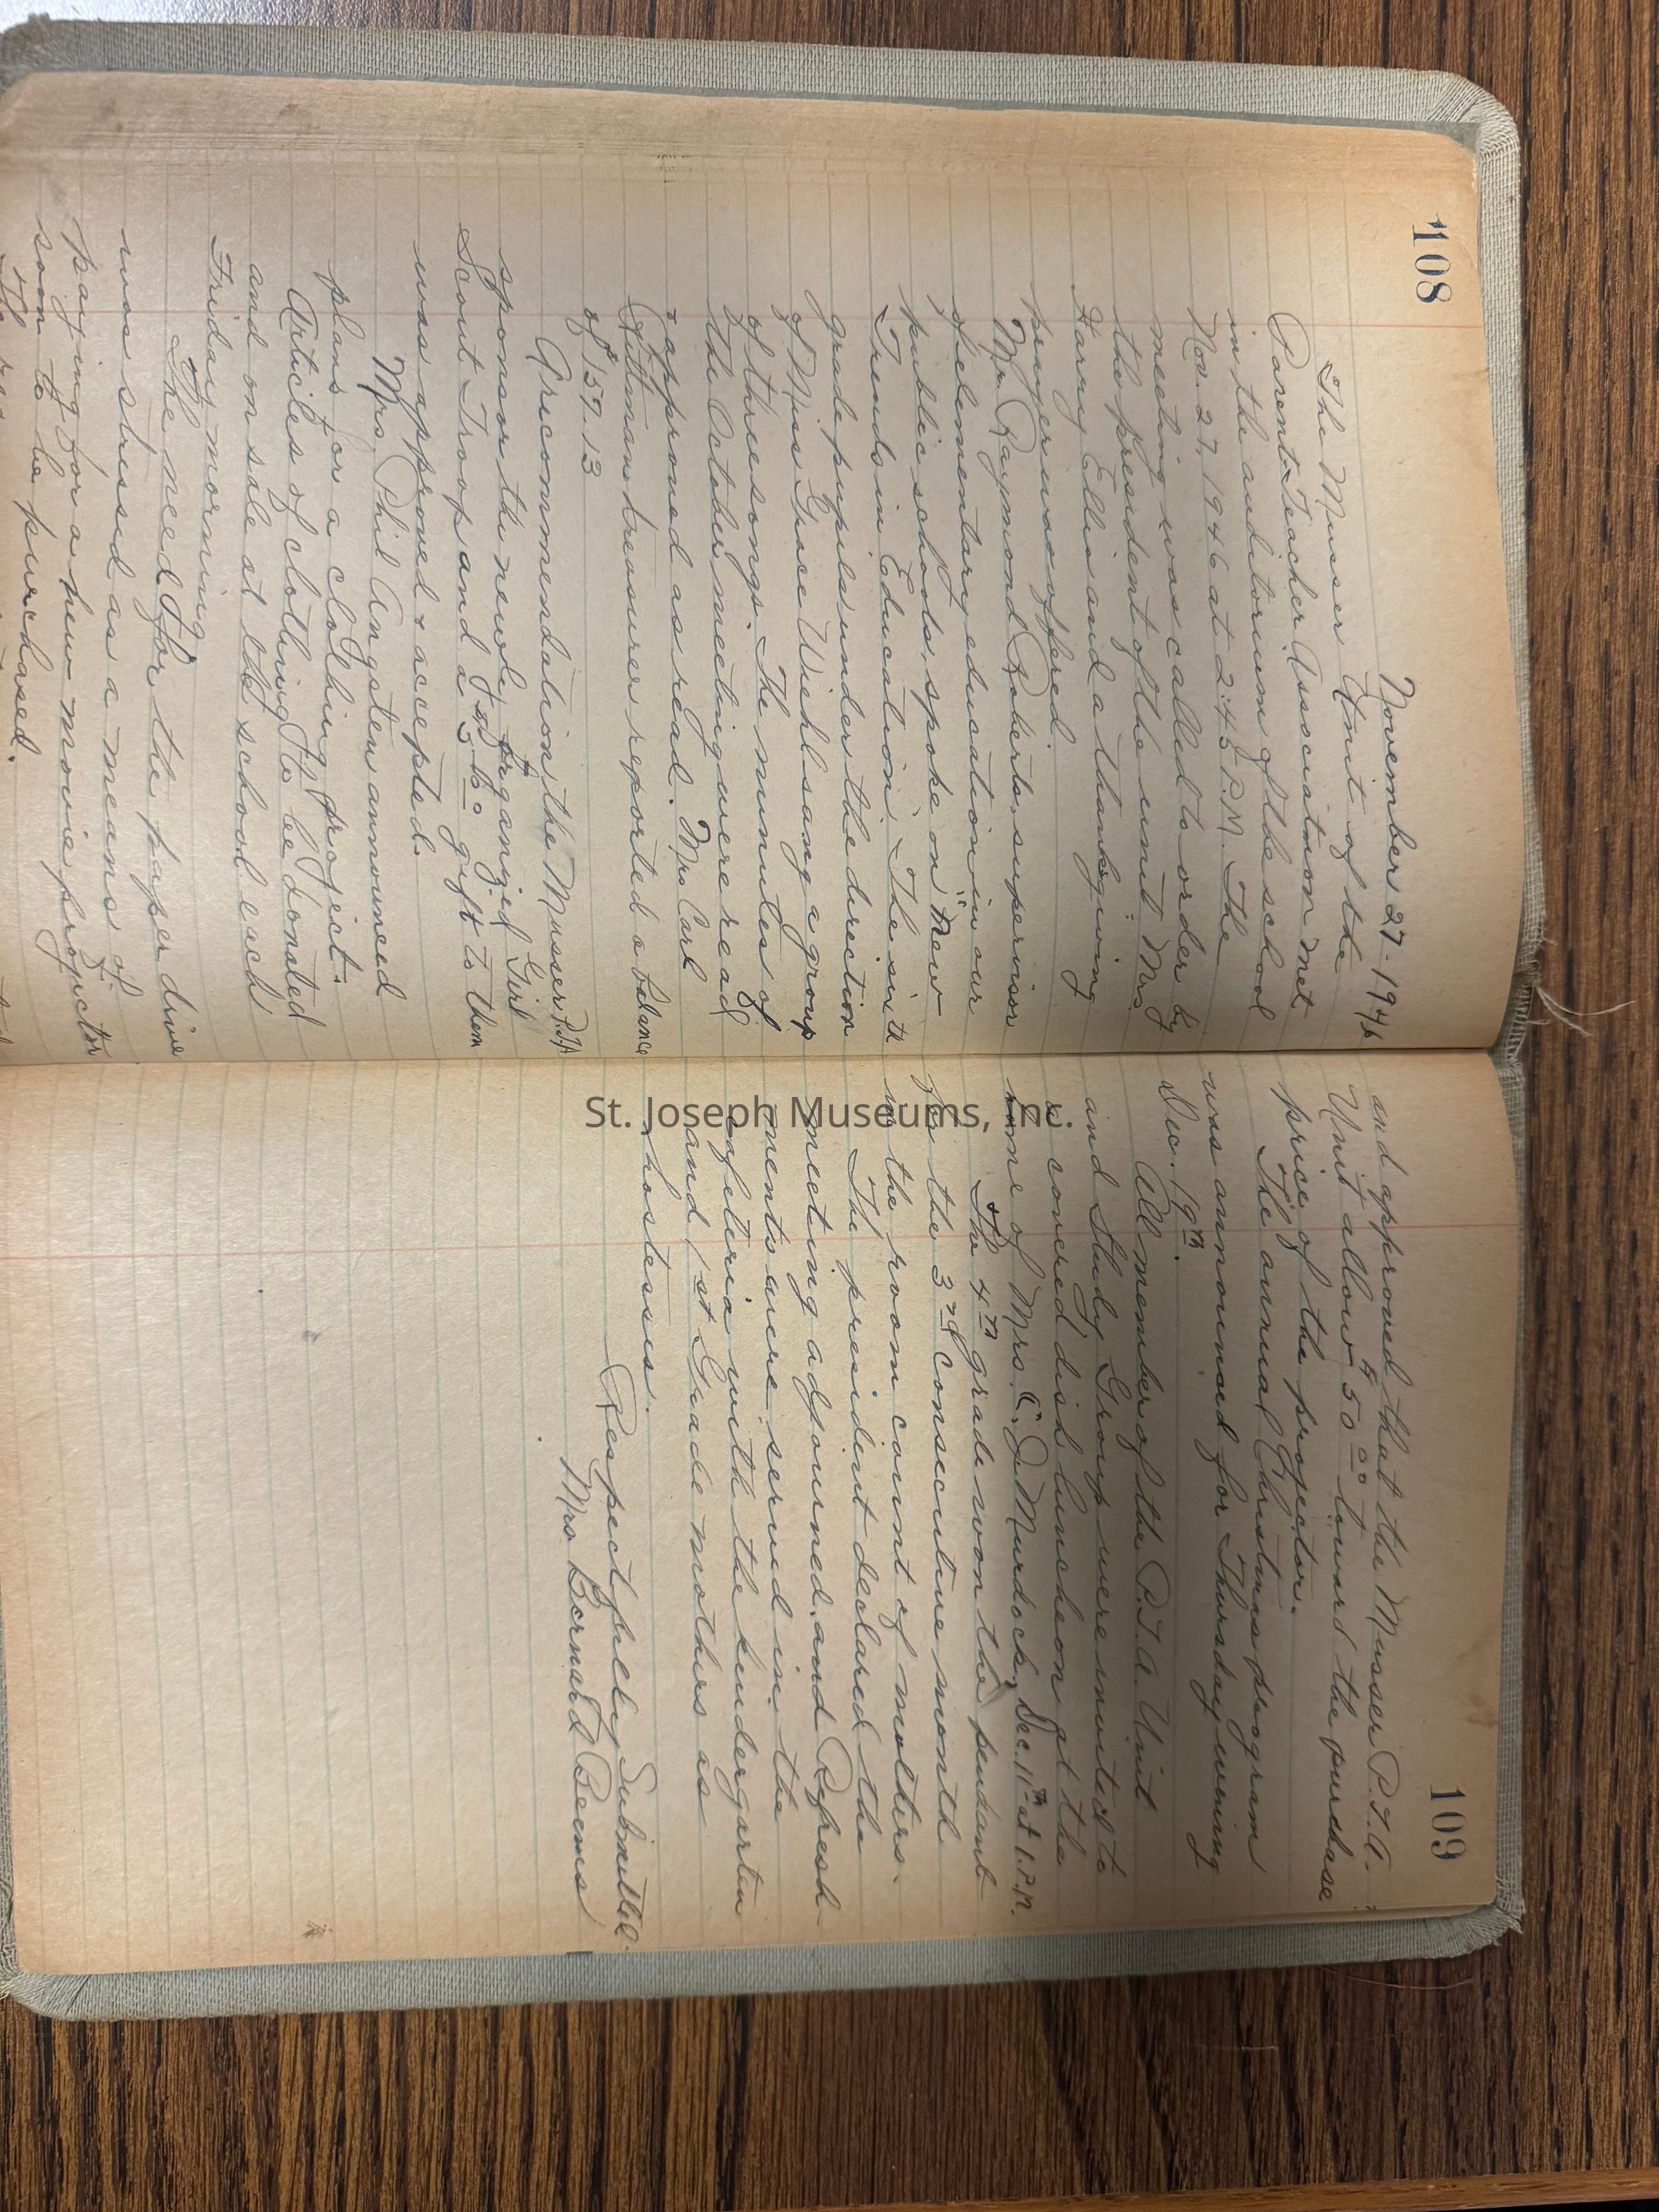 108
November 27 - 1946
The Musser Unit of the
Parent-Teacher Association met
in the auditorium of the school
Nov. 27, 1946 at 2:45 P.M. The
meeting was called to order by
the president of the unit Mrs
Harry Ellis and a thanksgiving
prayer was offered
Mr. Raymond Roberts, supervisor
of elementary education in our
public schools, spoke on "New
Trends in Education. The sixth
grade pupils under the direction
of Miss Grace Wiehl sang a group
of three songs. The minutes of
the October meeting were read
& approved as read. Mrs Carl
Guttman treasurer reported a balance
of $159.13
A recommendation the Musser P.T.A
sponsor the newly organized Girl
Scout Troop and a $5.00 gift to them
was approved & accepted.
Mrs. Phil Angsten announced
plans for a clothing project.
Articles of clothing to be donated
and on sale at the school each
Friday morning.
The need for the paper drive
was stressed as a means of
paying for a new movie projector
soon to be purchased.
109
and approved that the Musser P.T.A.
Unit allow $50.00 toward the purchase
price of the projector.
The annual Christmas program
was announced for Thursday evening
Dec. 19th.
All members of the P.T.A. Unit
and Study Group were invited to
a covered dish luncheon at the
home of Mrs. C. J. Murdock, Dec. 11th at 1. P.M.
The 4th grade won the pendant
for the 3rd consecutive month
in the room count of mothers.
The president declared the
meeting adjourned, and Refresh
ments were served in the
cafeteria with the kindergarten
and 1st Grade mothers as
hostesses.
Respectfully Submitted.
Mrs Bernard Beems
St. Joseph Museums, Inc.